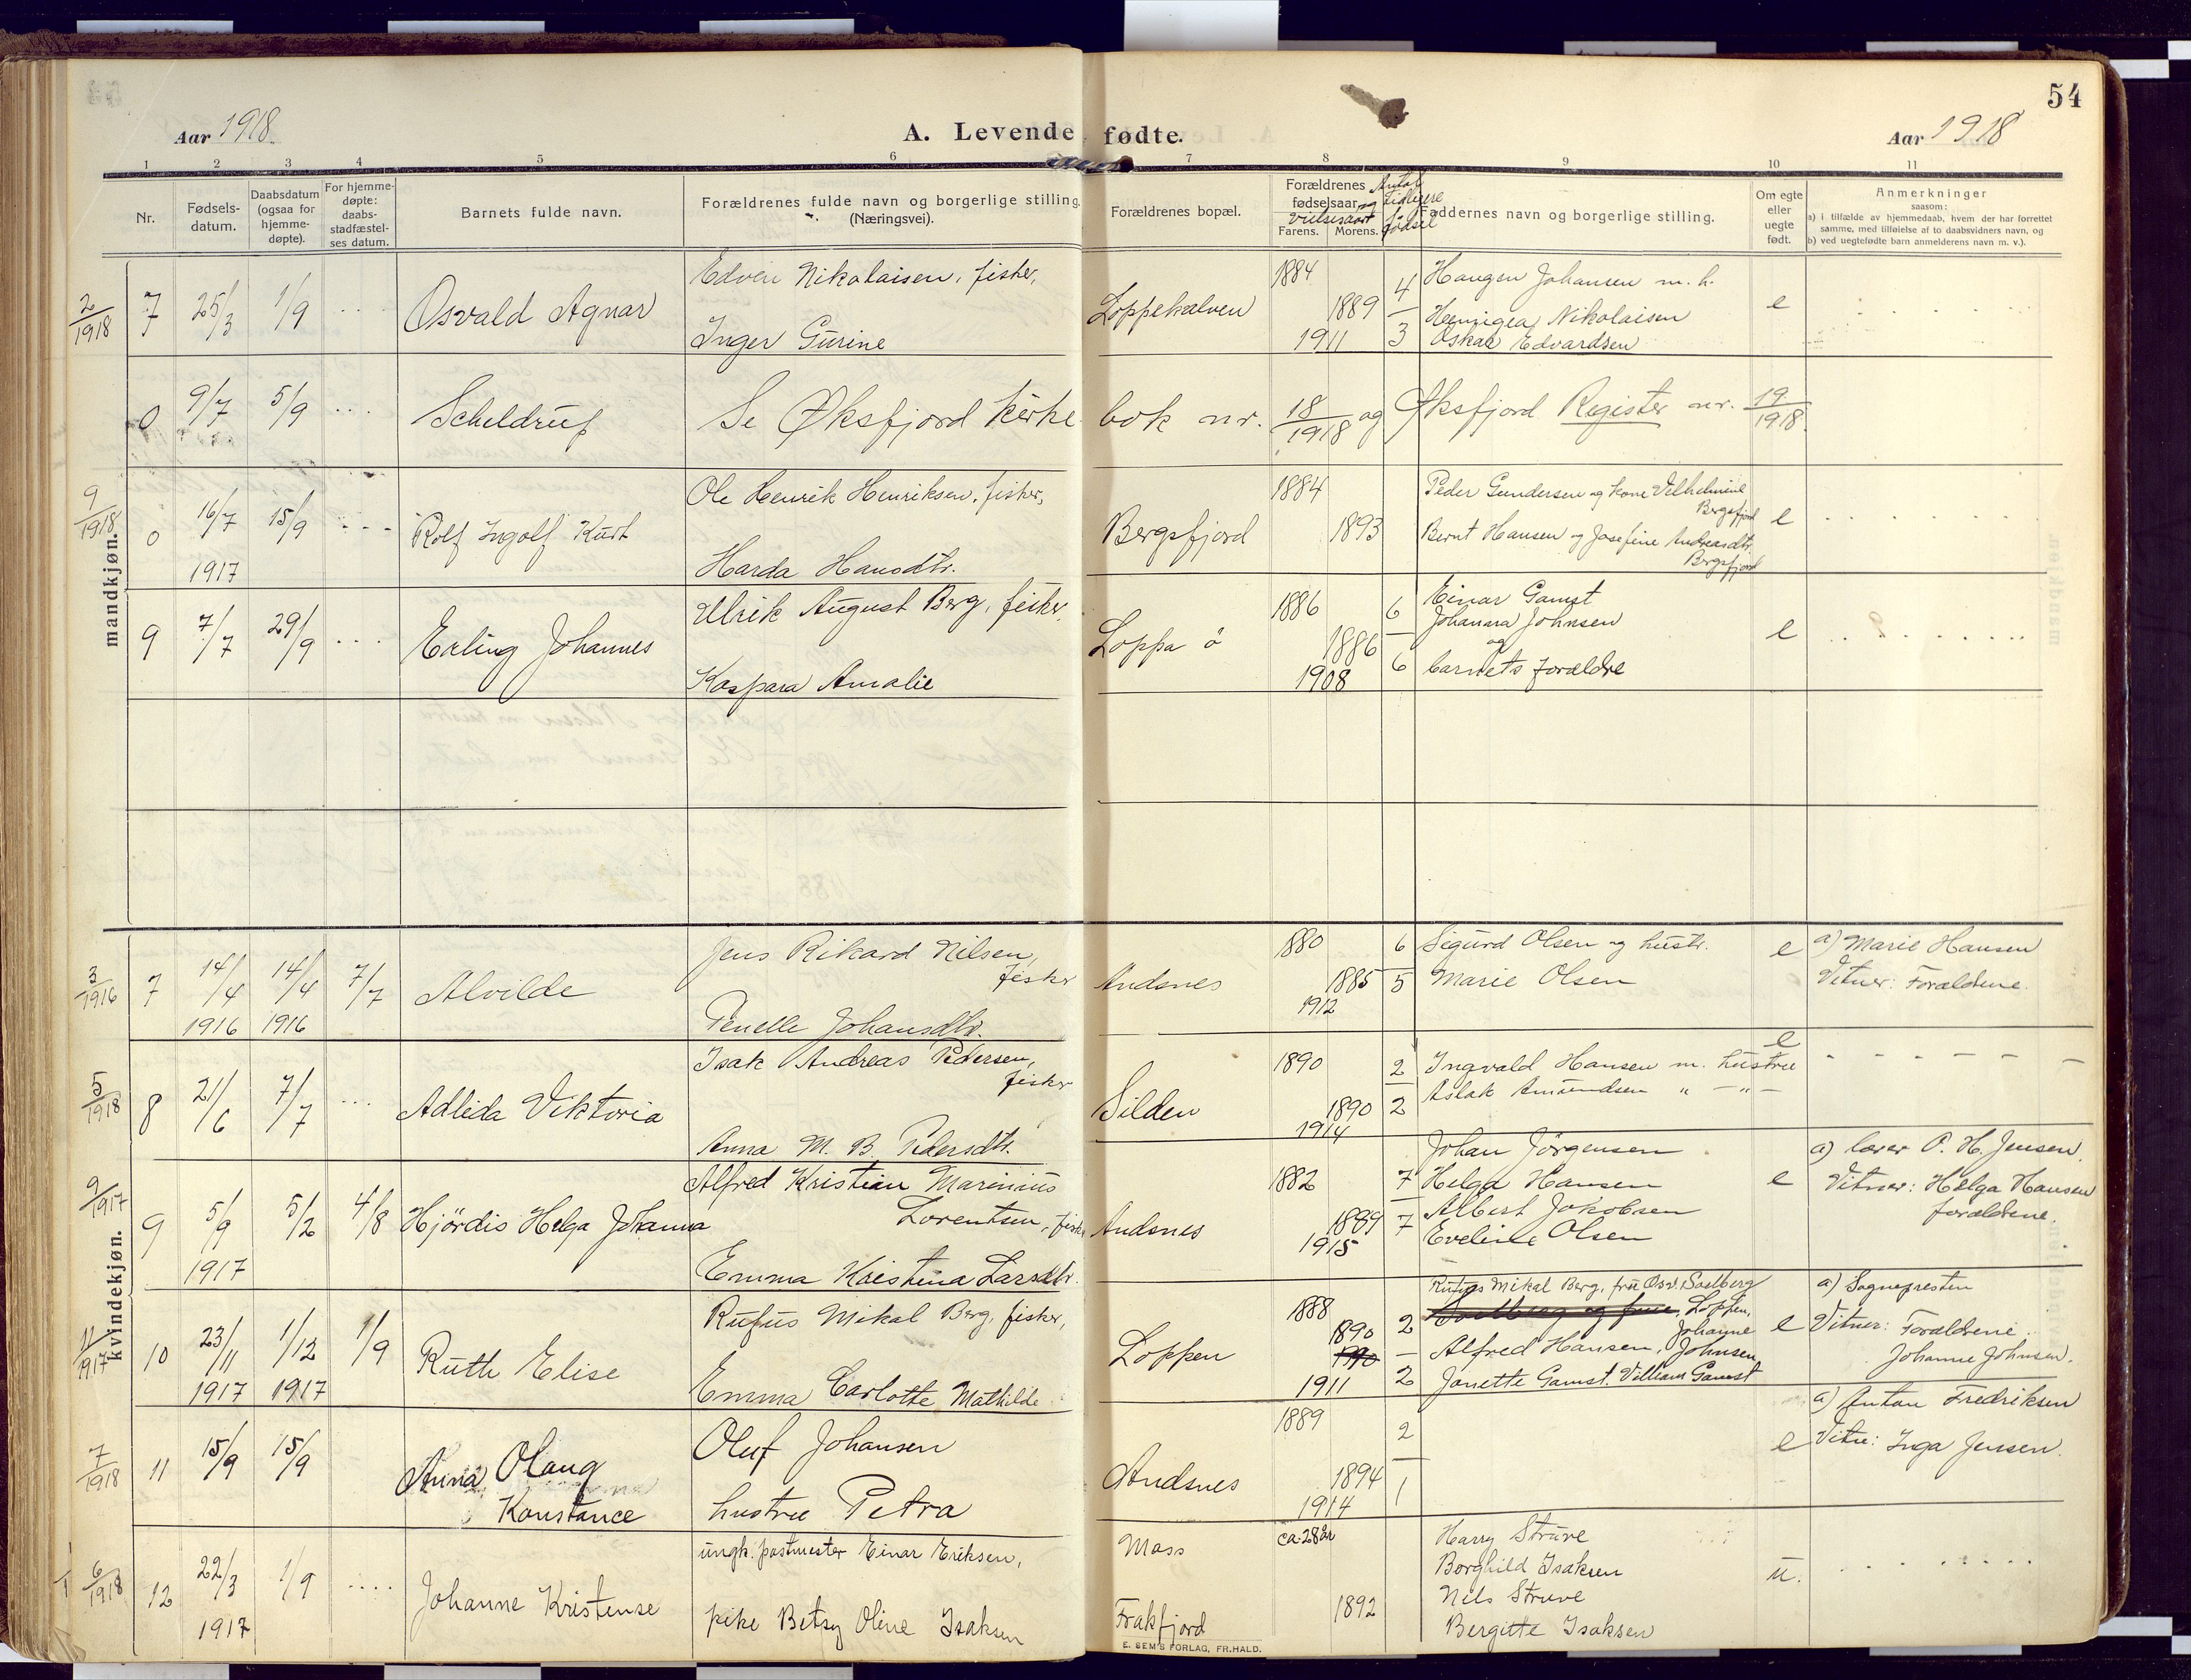 54
Aar 1918.
A. Levende fødte.
Aar 1918
1 2 3 4 5 6 7 8 9 10 11
Nr.
Fødsels-
datum.
Daabsdatum
(ogsaa for
hjemme-
døpte).
For hjemme-
døpte:
daabs-
stadfæstel-
ses datum.
Barnets fulde navn.
Forældrenes fulde navn og borgerlige stilling
(Næringsvei).
Forældrenes bopæl.
Forældrenes
fødselsaar og
vielsesaar
Farens. Morens.
Antal
tidligere
fødsel
Faddernes navn og borgerlige stilling.
Om egte
eller
uegte
født.
Anmerkninger
saasom:
a) i tilfælde av hjemmedaab, hvem der har forrettet
samme, med tilføielse af to daabsvidners navn, og
b) ved uegtefødte barn anmelderens navn m. v.).
mandkjøn.
2/1918 7 25/3 1/9 Osvald Agnar
Edvin Nikolaisen, fisker,
Inger Gurine
Loppekalven
1884
1889
1911
4
3
Haugen Johansen m. h.
Hennigea Nikolaisen
Oskar Edvardsen
e
0 9/7 5/9 Scheldrup Se Øksfjord kirke bok nr. 18/1918 og Øksfjord Register nr. 19/1918.
9/1918 0 16/7 15/9 Rolf Ingolf Kurt
1917
Ole Henrik Henriksen, fisker,
Harda Hansdtr.
Bergsfjord
1884
1893
Peder Gundersen og kone Vilhelmine
Bergsfjord
Bernt Hansen og Josefine Andreasdtr.
Bergsfjord
e
9 7/7 29/9 Erling Johannes
Ulrik August Berg, fisker,
Kaspara Amalie
Loppa ö
1886
1886
1908
6
6
Einar Gamst
Johanna Johnsen
og
barnets forældre
e
kvindekjøn.
3/1916 7 14/4 14/4 7/7 Alvilde
1916 1916
Jens Rikard Nilsen,
fisker
Penelle Johansdtr.
Andsnes
1880
1885
1912
6
5
Sigurd Olsen og hustr.
Marie Olsen
e
a) Marie Hansen
Vitner: Forældrene.
5/1918 8 21/6 7/7 Adleda Viktoria
Isak Andreas Pedersen,
fisker
Anna M. B. Pedersdtr.
Silden
1890
1890
1914
2
2
e
Ingvald Hansen m. hustru
Aslak Amundsen " — " —
9/1917 9 5/9 5/2 4/8 Hjördis Helga Johanna
1917
Alfred Kristian Marinius
Lorentsen, fisker
Emma Kristina Larsdtr.
Andsnes
1882
1889
1915
7
7
Johan Jörgensen
Helga Hansen
Albert Jakobsen
Eveline Olsen
e
a) lærer P. H. Jensen.
Vitner: Helga Hansen
forældrene.
11/1917 10 23/11 1/12 1/9 Ruth Elise
1917 1917
Rufus Mikal Berg, fisker,
Emma Carlotte Mathilde
Loppen
1888
1890
1911
2
2
Rufus Mikal Berg, fru Osv. Soelberg
Loppen,
Alfred Hansen, Johanne Johnsen
Janette Gamst. Villiam Gamst
e
a) Sognepresten
Vitner: Forældrene.
Johanne Johnsen.
7/1918 11 15/9 15/9 Anna Olaug
Konstance
Oluf Johansen
hustru Petra
Andsnes
1889
1894
1914
2
1
e
a) Anton Fredriksen
Vitn: Inga Jensen.
6/1918 12 22/3 1/9 Johanne Kristense
1917
ungk. postmester Einar Eriksen,
pike Betsy Oline Isaksen
Moss
Frakfjord
ca. 28 år
1892
Harry Struve
Borghild Isaksen
Nils Struve
Bergitte Isaksen
u.
E. SEM'S FORLAG, FR.HALD.